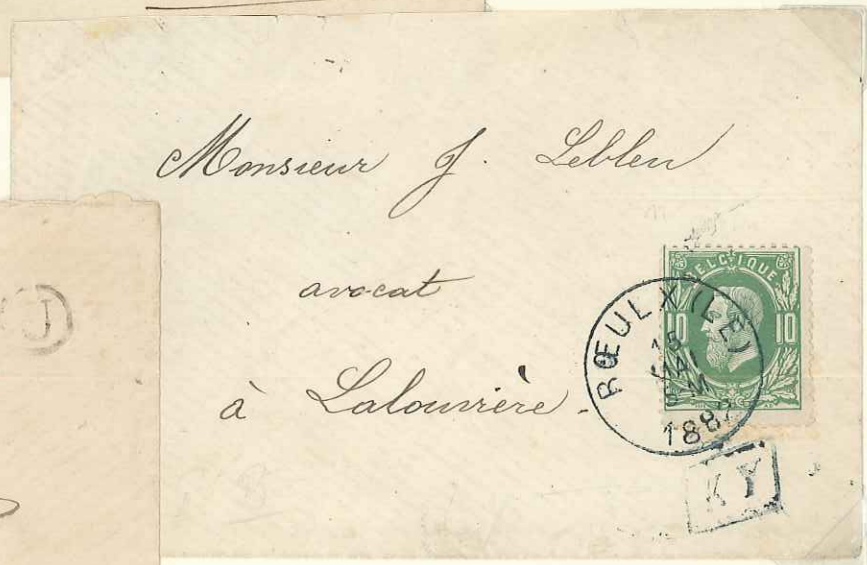 Monsieur J. Leblen
avocat
à Lalouvière.
BELGIQUE
10 10
RŒULX (LE)
15
MAI
M
1882
KY
J